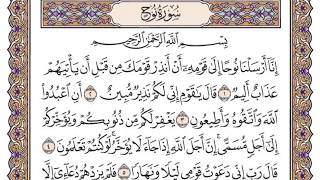 سُورَةُ نُوحٍ
بِسْمِ ٱللَّهِ ٱلرَّحْمَٰنِ ٱلرَّحِيمِ
إِنَّآ أَرْسَلْنَا نُوحًا إِلَىٰ قَوْمِهِۦٓ أَنْ أَنذِرْ قَوْمَكَ مِن قَبْلِ أَن يَأْتِيَهُمْ
عَذَابٌ أَلِيمٌ ١ قَالَ يَٰقَوْمِ إِنِّي لَكُمْ نَذِيرٌ مُّبِينٌ ٢ أَنِ ٱعْبُدُوا۟
ٱللَّهَ وَٱتَّقُوهُ وَأَطِيعُونِ ٣ يَغْفِرْ لَكُم مِّن ذُنُوبِكُمْ وَيُؤَخِّرْكُمْ
إِلَىٰٓ أَجَلٍ مُّسَمًّى إِنَّ أَجَلَ ٱللَّهِ إِذَا جَآءَ لَا يُؤَخَّرُ لَوْ كُنتُمْ تَعْلَمُونَ ٤
قَالَ رَبِّ إِنِّي دَعَوْتُ قَوْمِي لَيْلًا وَنَهَارًا ٥ فَلَمْ يَزِدْهُمْ دُعَآءِيٓ إِلَّا